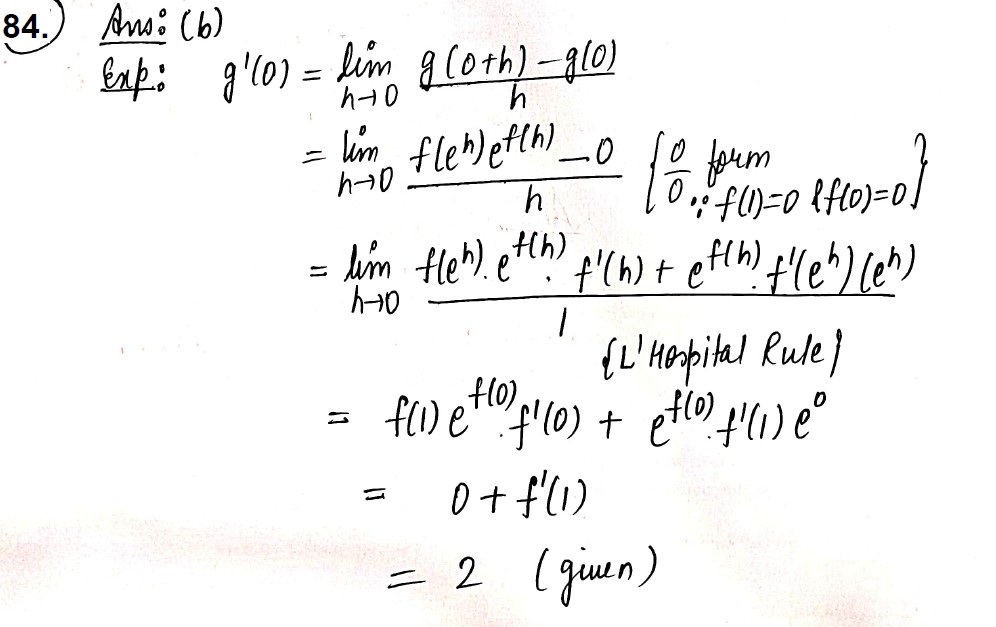 84. Ans: (b)
Exp: g'(0) = lim h→0 g(0+h) – g(0) / h
= lim h→0 f(e^h)e^f(h) – 0 / h {0/0 form ∵ f(1)=0 & f(0)=0}
= lim h→0 f(e^h).e^f(h). f'(h) + e^f(h). f'(e^h)(e^h) / 1
{L'Hospital Rule}
= f(1) e^f(0).f'(0) + e^f(0).f'(1) e^0
= 0 + f'(1)
= 2 (given)